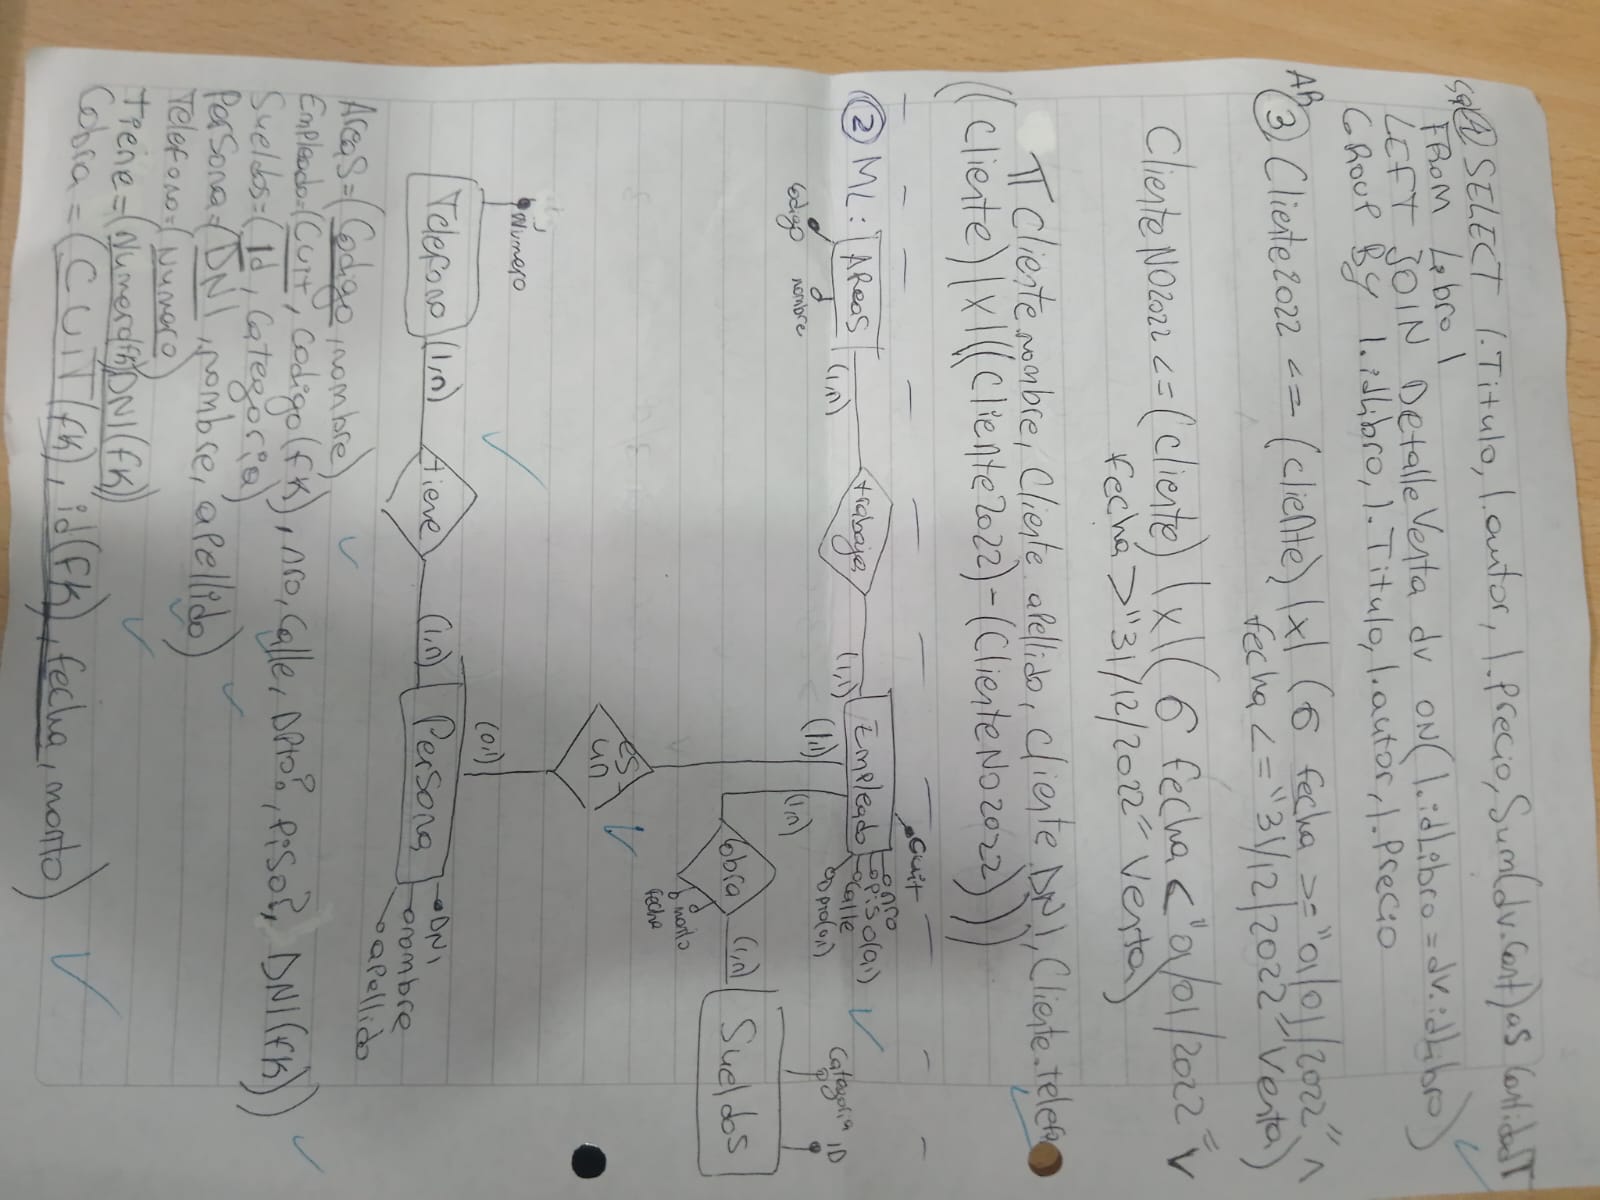 SQL ④ SELECT l.Titulo, l.autor, l.Precio, Sum(dv.Cant) as CantidadT
FROM Libro l
LEFT JOIN DetalleVenta dv ON(l.idLibro = dv.idLibro)
GROUP BY l.idLibro, l.Titulo, l.autor, l.Precio
AR ③ Cliente2022 <= (cliente) |x| (σ fecha >= "01/01/2022" ^
fecha <= "31/12/2022" Venta)
ClienteNO2022 <= (cliente) |x| (σ fecha < "01/01/2022" v
fecha > "31/12/2022" Venta)
π Cliente.nombre, Cliente.apellido, cliente.DNI, Cliente.telefo
((Cliente) |x| ((Cliente2022) - (ClienteNO2022)))
② ML: AReas
(1,n)
trabaja
(1,1)
Empleado
Cuit
nro
piso(0,1)
calle
Dpto(0,1)
Codigo
nombre
(1,1)
(1,n)
Categoria
ID
Cobra
(1,n)
Sueldos
monto
fecha
es
un
Numero
(0,1)
Telefono
(1,n)
tiene
(1,n)
Persona
DNI
nombre
apellido
Areas=(Codigo, nombre)
Empleado=(Cuit, codigo(fk), nro, calle, Dpto?, piso?, DNI(fk))
Sueldos=(Id, Categoria)
Persona=(DNI, nombre, apellido)
Telefono=(Numero)
tiene=(Numero(fk)DNI(fk))
Cobra=(CUIT(fk), id(fk), fecha, monto)